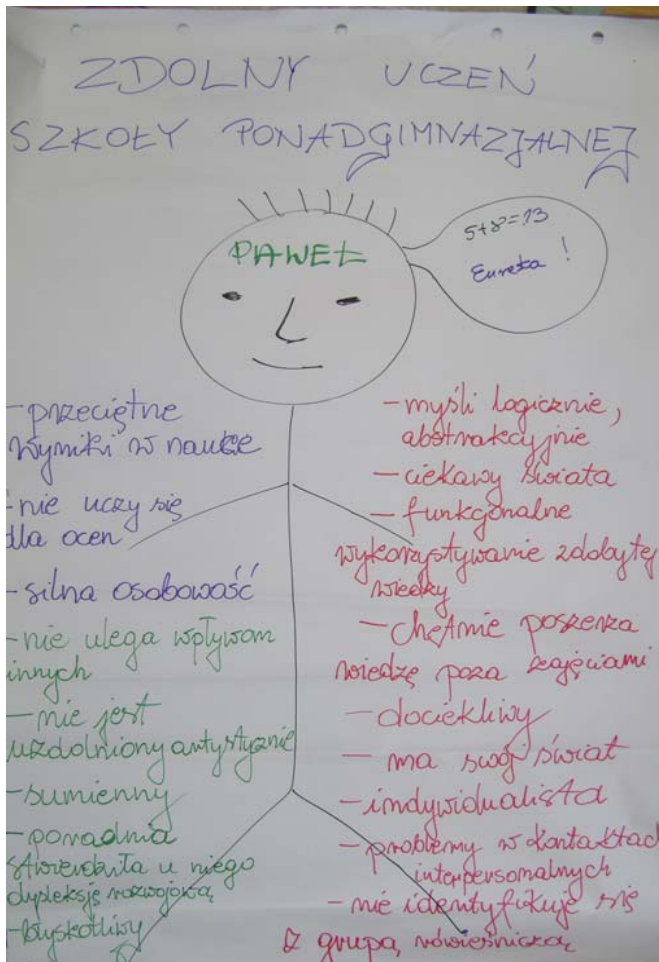 ZDOLNY UCZEŃ
SZKOŁY PONADGIMNAZJALNEJ
PAWEŁ
5+8=13
Eureka !
- przeciętne
wyniki w nauce
- nie uczy się
dla ocen
- silna osobowość
- nie ulega wpływom
innych
- nie jest
uzdolniony artystycznie
- sumienny
- poradnia
stwierdziła u niego
dypleksję rozwojową
- błyskotliwy
- myśli logicznie,
abstrakcyjnie
- ciekawy świata
- funkcjonalne
wykorzystywanie zdobytej
wiedzy
- chętnie poszerza
wiedzę poza zajęciami
- dociekliwy
- ma swój świat
- indywidualista
- problemy w kontaktach
interpersonalnych
- nie identyfikuje się
z grupą rówieśniczą